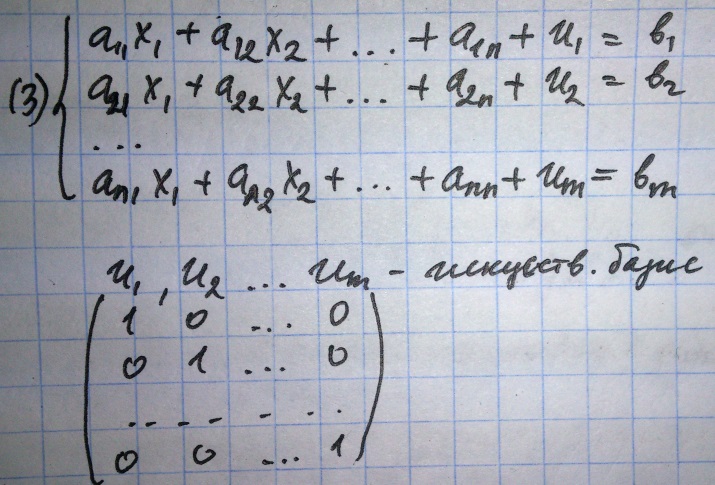 (3) { a₁₁x₁ + a₁₂x₂ + ... + a₁ₙ + u₁ = b₁
a₂₁x₁ + a₂₂x₂ + ... + a₂ₙ + u₂ = b₂
...
aₙ₁x₁ + aₙ₂x₂ + ... + aₙₙ + uₘ = bₘ
u₁, u₂ ... uₘ - искуств. базис
1 0 ... 0
0 1 ... 0
.. - - - ..
0 0 ... 1